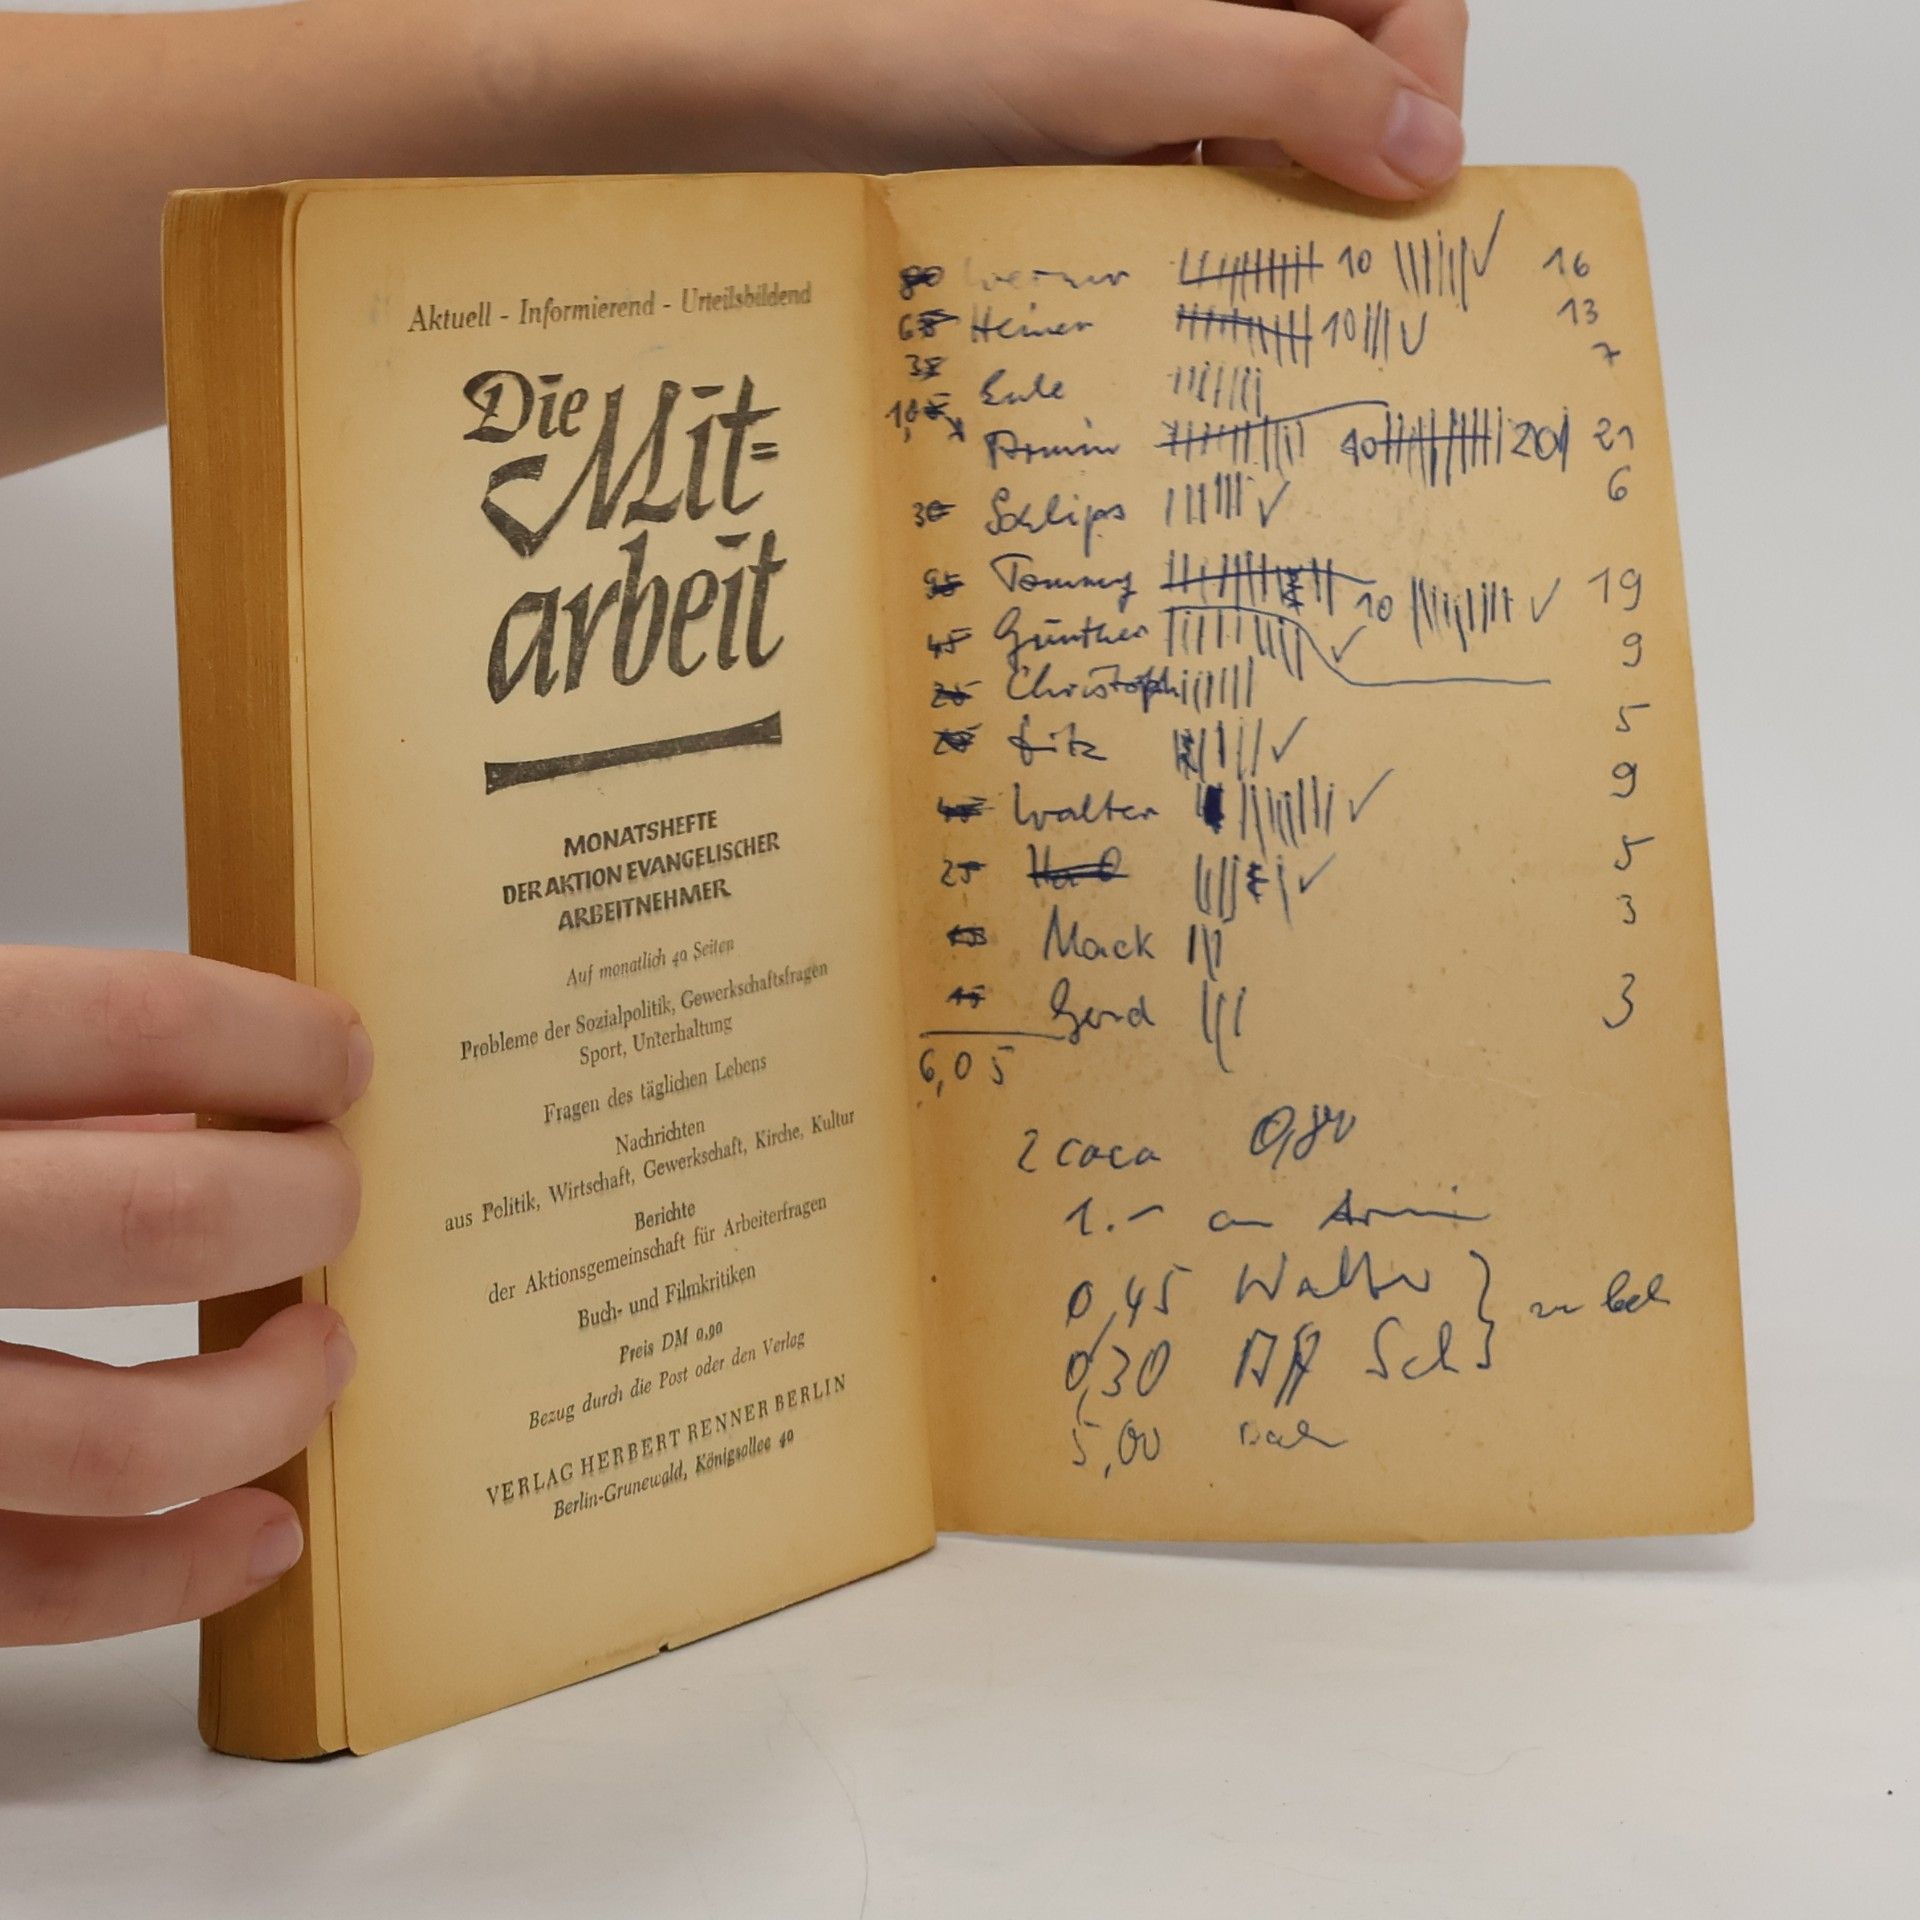 Aktuell - Informierend - Urteilsbildend
Die Mit=
arbeit
MONATSHEFTE
DER AKTION EVANGELISCHER
ARBEITNEHMER
Auf monatlich 40 Seiten
Probleme der Sozialpolitik, Gewerkschaftsfragen
Sport, Unterhaltung
Fragen des täglichen Lebens
Nachrichten
aus Politik, Wirtschaft, Gewerkschaft, Kirche, Kultur
Berichte
der Aktionsgemeinschaft für Arbeiterfragen
Buch- und Filmkritiken
Preis DM 0,90
Bezug durch die Post oder den Verlag
VERLAG HERBERT RENNER BERLIN
Berlin-Grunewald, Königsallee 40
80 Werner 10 ✓ 16
65 Heiner 10 13
35 Eule 7
Armin 10 20 21
30 Schlips ✓ 6
95 Tommy 10 ✓ 19
45 Günther ✓ 9
25 Christoph
Fitz ✓ 5
45 Walter ✓ 9
25 ✓ 5
15 Mack 3
15 Gerd 3
6,05
2 coca 0,80
1.- an Armin
0,45 Walter
0,30 Sch
5,00